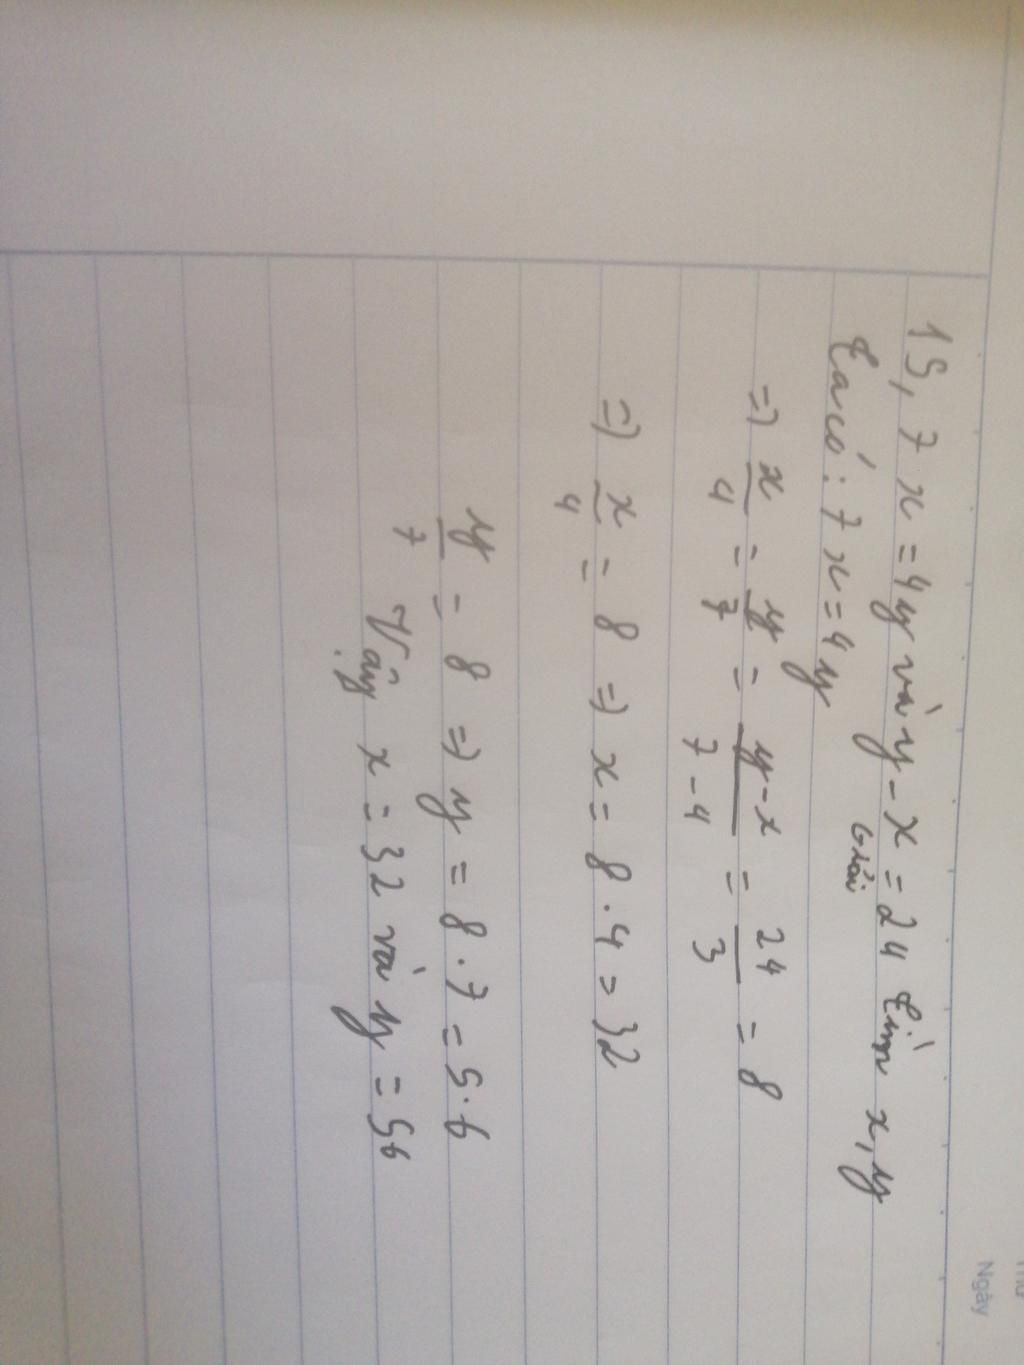 15, 7x = 4y và y - x = 24 tìm x, y
Giải
Ta có : 7x = 4y
=) x/4 = y/7 = y-x/7-4 = 24/3 = 8
=) x/4 = 8 =) x = 8 . 4 = 32
y/7 = 8 =) y = 8 . 7 = 5.6
Vậy x = 32 và y = 56
Ngày